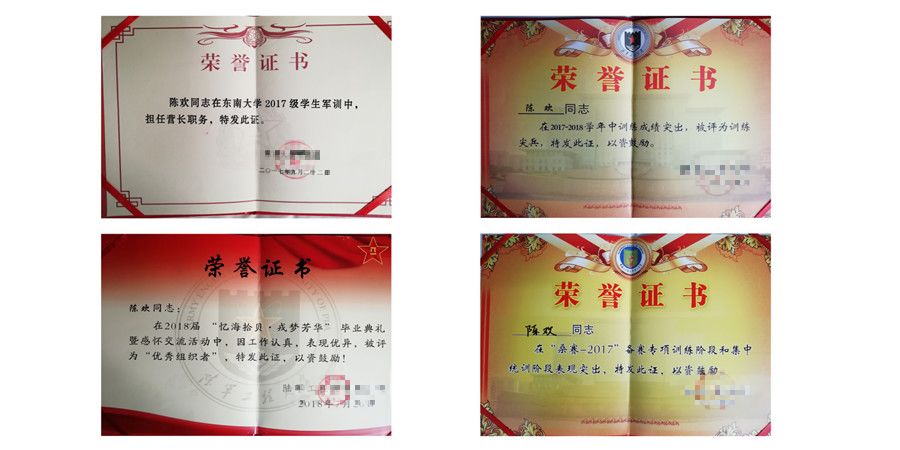 荣誉证书
陈欢同志在东南大学2017级学生军训中，
担任营长职务，特发此证。
二〇一七年九月二十二日
荣誉证书
陈欢 同志
在2017-2018学年中训练成绩突出，被评为训练
尖兵，特发此证，以资鼓励。
荣誉证书
陈欢同志：
在2018届“忆海拾贝·戎梦芳华”毕业典礼
暨感怀交流活动中，因工作认真，表现优异，被评
为“优秀组织者”，特发此证，以资鼓励！
陆
2018年
荣誉证书
陈欢 同志
在“桑赛-2017”备赛专项训练阶段和集中
统训阶段表现突出，特发此证，以资鼓励。